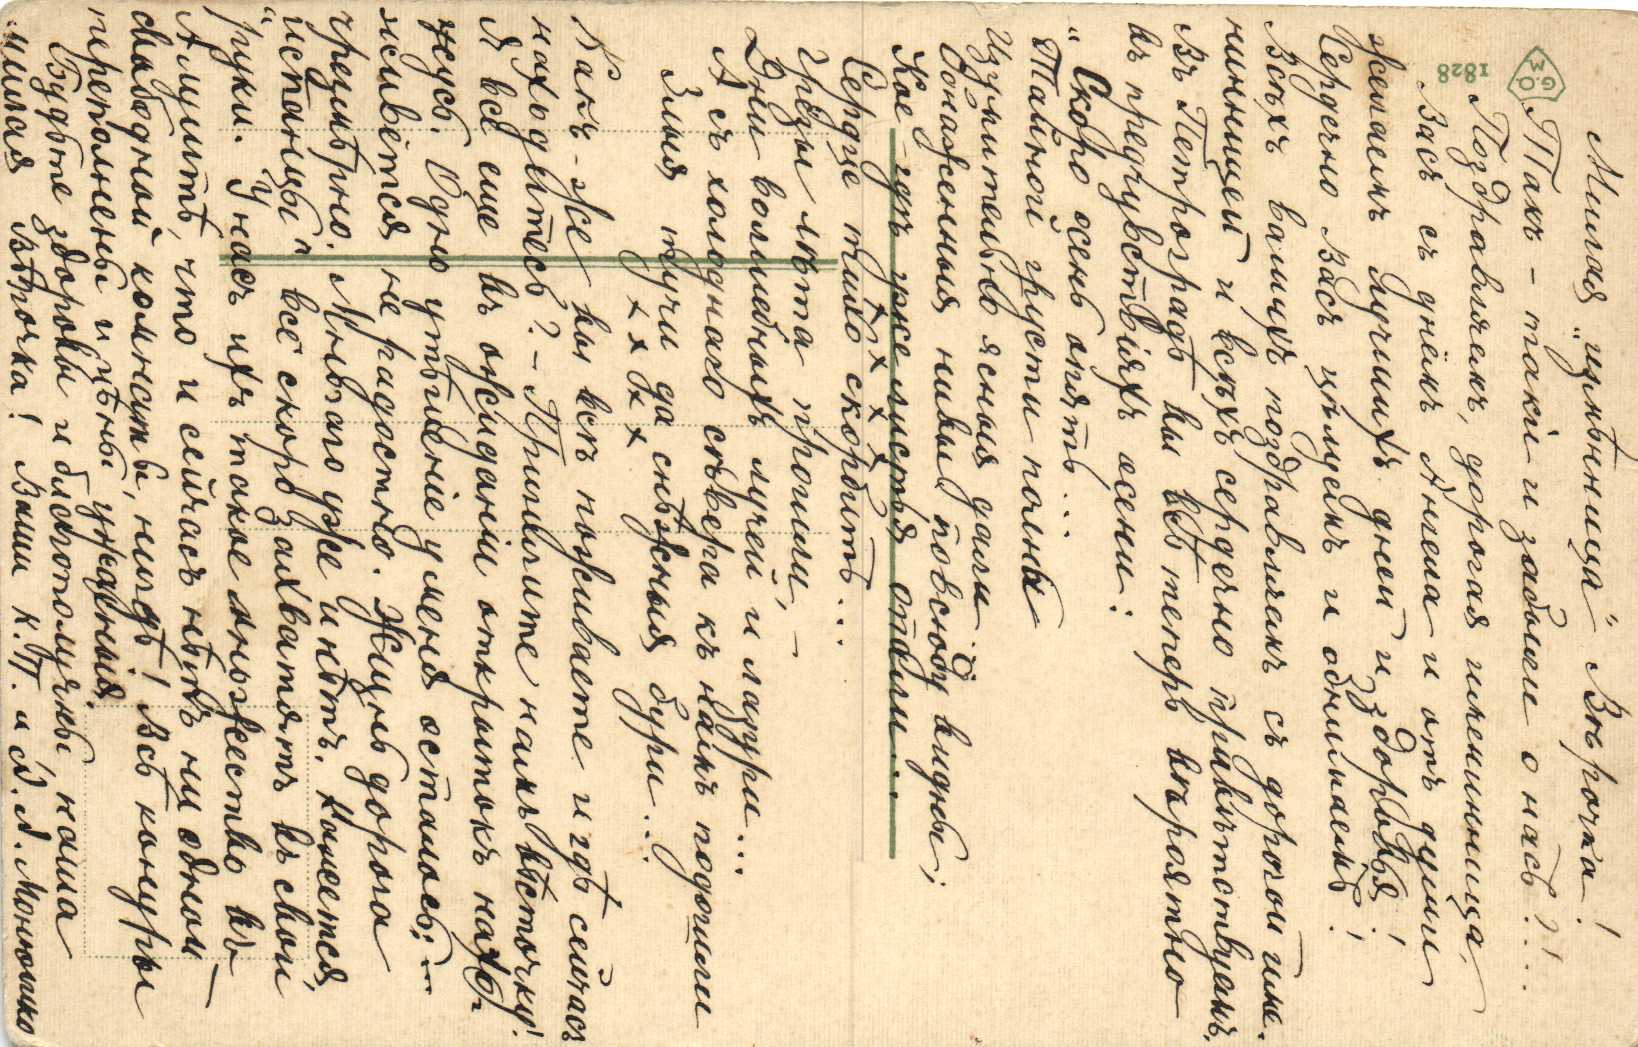 Милая „измѣнница" Вѣрочка!
Такъ-таки и забыли о насъ?!...
Поздравляемъ, дорогая именинница,
Васъ съ днёмъ Ангела и отъ души
желаемъ лучшихъ дней и здоровья!
Сердечно Васъ цѣлуемъ и обнимаемъ!
Всѣхъ вашихъ поздравляемъ съ дорогой име-
нинницей и всѣхъ сердечно привѣтствуемъ.
Въ Петроградѣ вы всѣ теперь вѣроятно
въ предчувствіяхъ осени:
„Скоро осень опять...
Тайной грусти полны
Изумительно ясныя дали.
Обнаженныя нивы повсюду видны,
Кое-гдѣ уже листья опали...
Сердце тихо скорбитъ...
х х х х х
Грёзы лѣта прошли, –
Дни волшебныхъ лучей и лазури...
А съ холоднаго сѣвера къ намъ подошли
Злыя тучи да снѣжныя бури...
х х х х
Какъ-же вы всѣ поживаете и гдѣ сейчасъ
находитесь? – Пришлите намъ вѣсточку!
Я всё еще въ ожиданіи открытокъ нахо-
жусь. Одно утѣшеніе у меня осталось:...
живётся не радостно. Жизнь дорога
чрезмѣрно. Многаго уже и нѣтъ. Кажется,
„испанцы" всё скоро захватятъ въ свои
руки. У насъ ихъ такое множество въ
А лушть, что и сейчасъ нѣтъ ни одной
свободной комнаты, нигдѣ! Всѣ конуры
переполнены и цѣны ужасныя.
Будьте здоровы и благополучны, наша
милая Вѣрочка! Ваши К.П. и А.А. Монюшко
G.O.M
1828